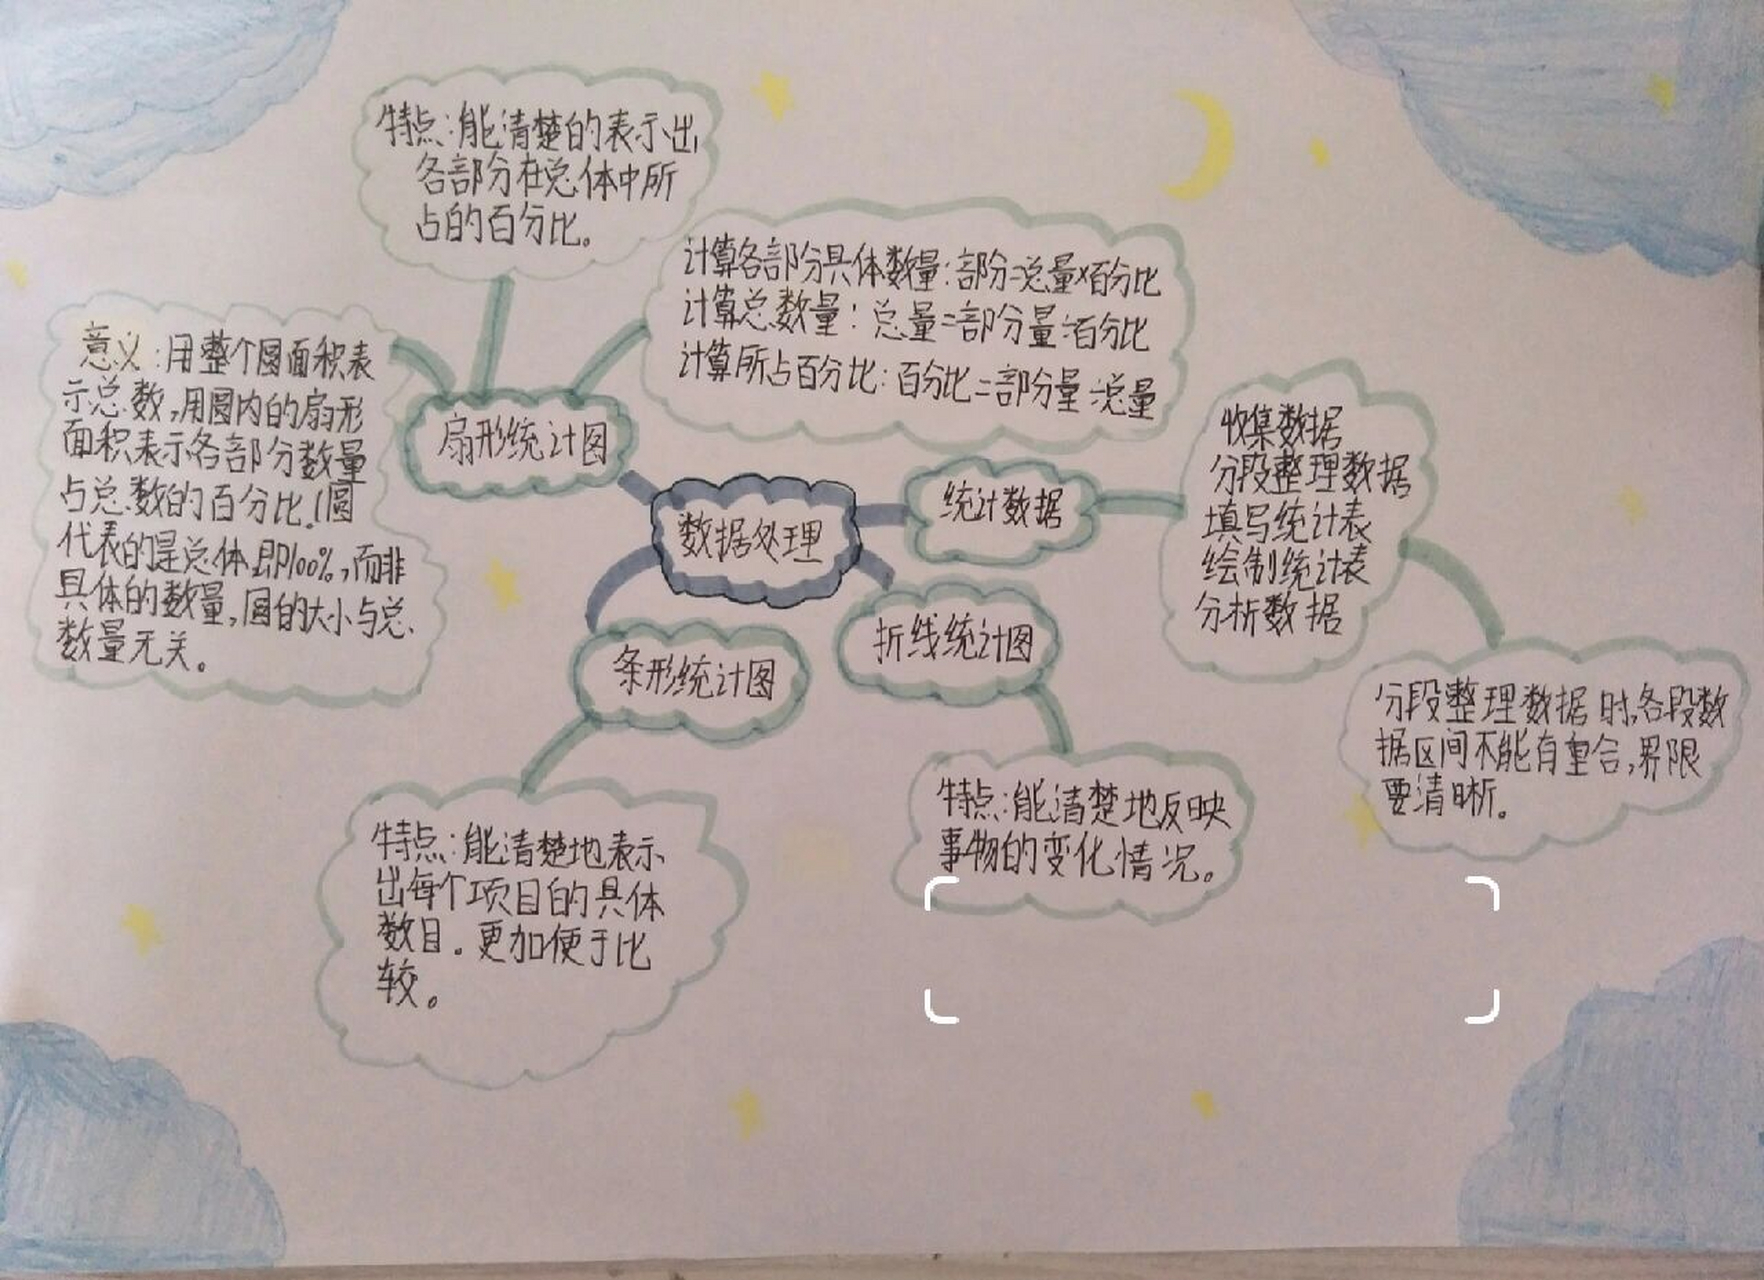 特点:能清楚的表示出
各部分在总体中所
占的百分比。
计算各部分具体数量:部分=总量×百分比
计算总数量:总量=部分量÷百分比
计算所占百分比:百分比=部分量÷总量
意义:用整个圆面积表
示总数,用圆内的扇形
面积表示各部分数量
占总数的百分比.(圆
代表的是总体即100%,而非
具体的数量,圆的大小与总
数量无关。
扇形统计图
数据处理
统计数据
收集数据
分段整理数据
填写统计表
绘制统计表
分析数据
分段整理数据时,各段数
据区间不能有重合,界限
要清晰。
条形统计图
折线统计图
特点:能清楚地表示
出每个项目的具体
数目。更加便于比
较。
特点:能清楚地反映
事物的变化情况。